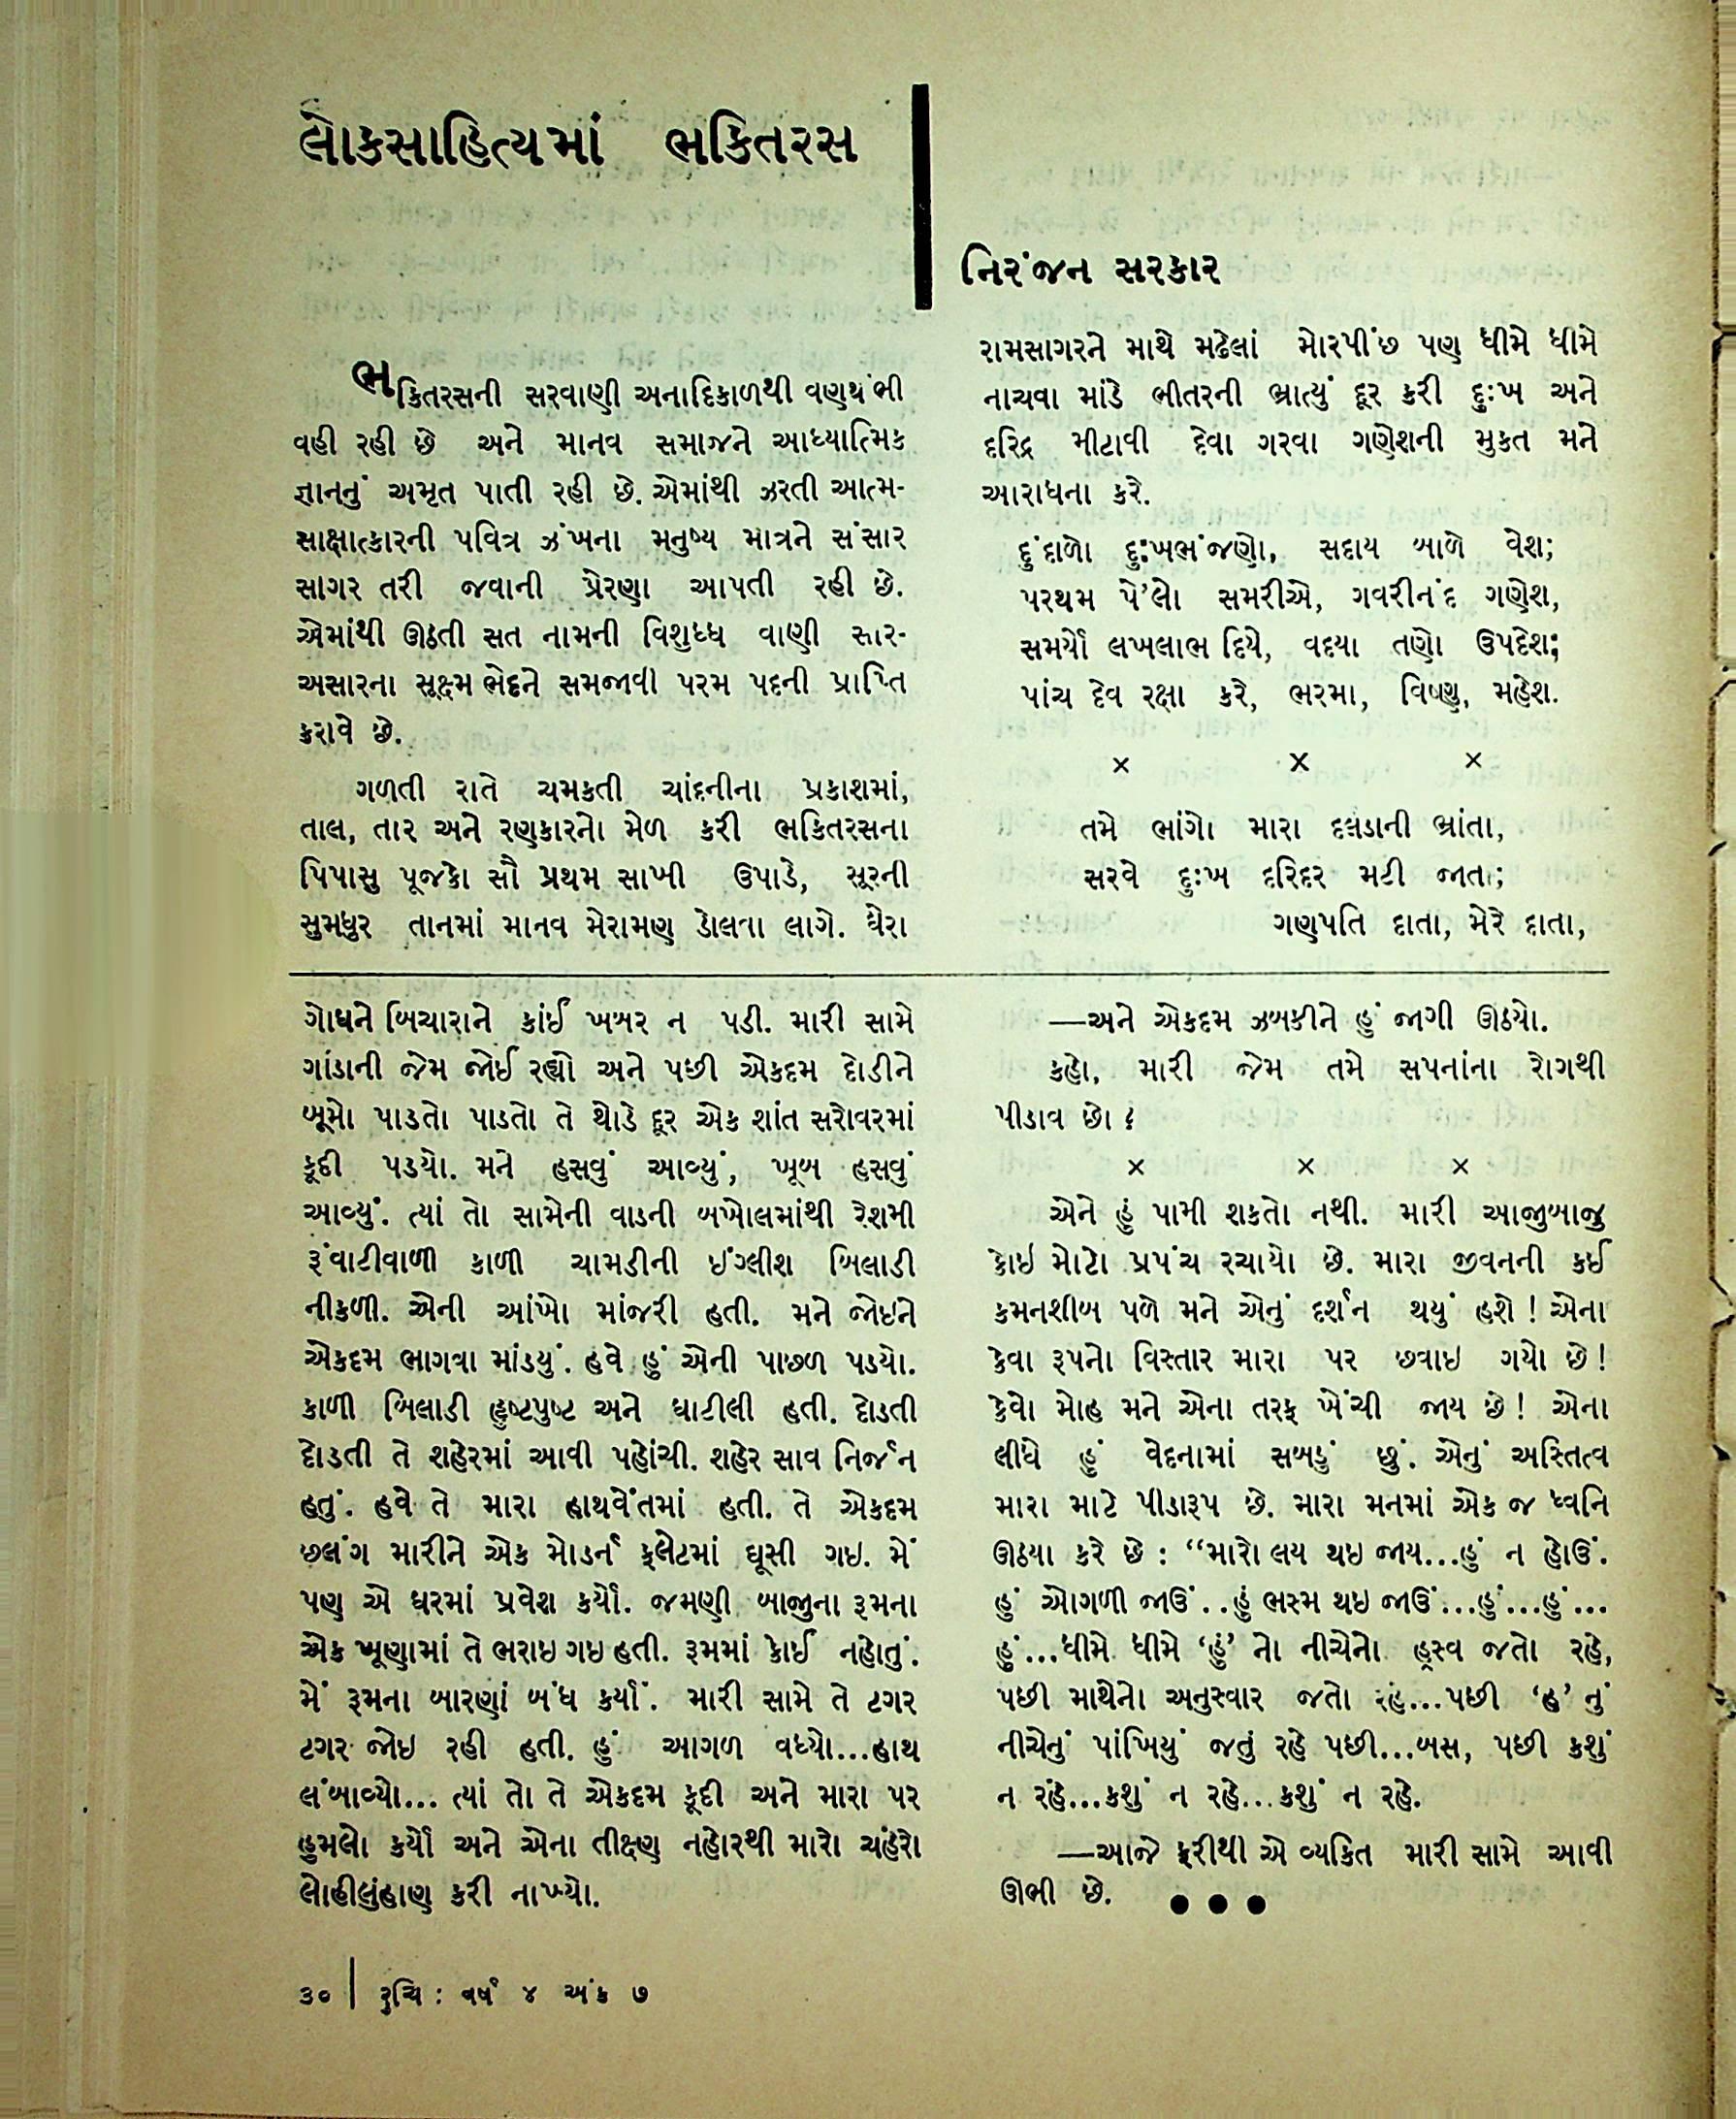 લોકસાહિત્યમાં ભકિતરસ
નિરંજન સરકાર
ભકિતરસની સરવાણી અનાદિકાળથી વણથંભી
વહી રહી છે અને માનવ સમાજને આધ્યાત્મિક
જ્ઞાનનું અમૃત પાતી રહી છે. એમાંથી ઝરતી આત્મ-
સાક્ષાત્કારની પવિત્ર ઝંખના મનુષ્ય માત્રને સંસાર
સાગર તરી જવાની પ્રેરણા આપતી રહી છે.
એમાંથી ઊઠતી સત નામની વિશુધ્ધ વાણી સાર-
અસારના સૂક્ષ્મ ભેદને સમજાવી પરમ પદની પ્રાપ્તિ
કરાવે છે.
ગળતી રાતે ચમકતી ચાંદનીના પ્રકાશમાં,
તાલ, તાર અને રણકારનો મેળ કરી ભકિતરસના
પિપાસુ પૂજકો સૌ પ્રથમ સાખી ઉપાડે, સૂરની
સુમધુર તાનમાં માનવ મેરામણ ડોલવા લાગે. ઘેરા
રામસાગરને માથે મઢેલાં મોરપીંછ પણ ધીમે ધીમે
નાચવા માંડે ભીતરની ભ્રાત્યું દૂર કરી દુઃખ અને
દરિદ્ર મીટાવી દેવા ગરવા ગણેશની મુકત મને
આરાધના કરે.
દુંદાળો દુઃખભંજણો, સદાય બાળે વેશ;
પરથમ પે'લો સમરીએ, ગવરીનંદ ગણેશ,
સમર્યો લખલાભ દિયે, વદયા તણો ઉપદેશ;
પાંચ દેવ રક્ષા કરે, ભરમા, વિષ્ણુ, મહેશ.
× × ×
તમે ભાંગો મારા દલડાની ભ્રાંતા,
સરવે દુઃખ દરિદર મટી જાતા;
ગણપતિ દાતા, મેરે દાતા,
ગોધને બિચારાને કાંઈ ખબર ન પડી. મારી સામે
ગાંડાની જેમ જોઈ રહ્યો અને પછી એકદમ દોડીને
બૂમો પાડતો પાડતો તે થોડે દૂર એક શાંત સરોવરમાં
કૂદી પડયો. મને હસવું આવ્યું, ખૂબ હસવું
આવ્યું. ત્યાં તો સામેની વાડની બખોલમાંથી રેશમી
રૂંવાટીવાળી કાળી ચામડીની ઈંગ્લીશ બિલાડી
નીકળી. એની આંખો માંજરી હતી. મને જોઇને
એકદમ ભાગવા માંડયું. હવે હું એની પાછળ પડયો.
કાળી બિલાડી હૃષ્ટપુષ્ટ અને ઘાટીલી હતી. દોડતી
દોડતી તે શહેરમાં આવી પહોંચી. શહેર સાવ નિર્જન
હતું. હવે તે મારા હાથવેંતમાં હતી. તે એકદમ
છલંગ મારીને એક મોડર્ન ફ્લેટમાં ઘૂસી ગઇ. મેં
પણ એ ઘરમાં પ્રવેશ કર્યો. જમણી બાજુના રૂમના
એક ખૂણામાં તે ભરાઇ ગઇ હતી. રૂમમાં કોઈ નહોતું.
મેં રૂમના બારણાં બંધ કર્યાં. મારી સામે તે ટગર
ટગર જોઇ રહી હતી. હું આગળ વધ્યો...હાથ
લંબાવ્યો... ત્યાં તો તે એકદમ કૂદી અને મારા પર
હુમલો કર્યો અને એના તીક્ષ્ણ નહોરથી મારો ચહેરો
લોહીલુંહાણ કરી નાખ્યો.
—અને એકદમ ઝબકીને હું જાગી ઊઠયો.
કહો, મારી જેમ તમે સપનાંના રોગથી
પીડાવ છો ?
× × ×
એને હું પામી શકતો નથી. મારી આજુબાજુ
કોઇ મોટો પ્રપંચ રચાયો છે. મારા જીવનની કઈ
કમનશીબ પળે મને એનું દર્શન થયું હશે ! એના
કેવા રૂપનો વિસ્તાર મારા પર છવાઇ ગયો છે !
કેવો મોહ મને એના તરફ ખેંચી જાય છે ! એના
લીધે હું વેદનામાં સબડું છું. એનું અસ્તિત્વ
મારા માટે પીડારૂપ છે. મારા મનમાં એક જ ધ્વનિ
ઊઠયા કરે છે : “મારો લય થઇ જાય...હું ન હોઉં.
હું ઓગળી જાઉં..હું ભસ્મ થઇ જાઉં...હું...હું...
હું...ધીમે ધીમે ‘હું’ નો નીચેનો હ્રસ્વ જતો રહે,
પછી માથેનો અનુસ્વાર જતો રહે...પછી ‘હ’ નું
નીચેનું પાંખિયું જતું રહે પછી...બસ, પછી કશું
ન રહે...કશું ન રહે...કશું ન રહે.
—આજે ફરીથી એ વ્યકિત મારી સામે આવી
ઊભી છે. ●●●
૩૦ | રુચિ : વર્ષ ૪ અંક ૭